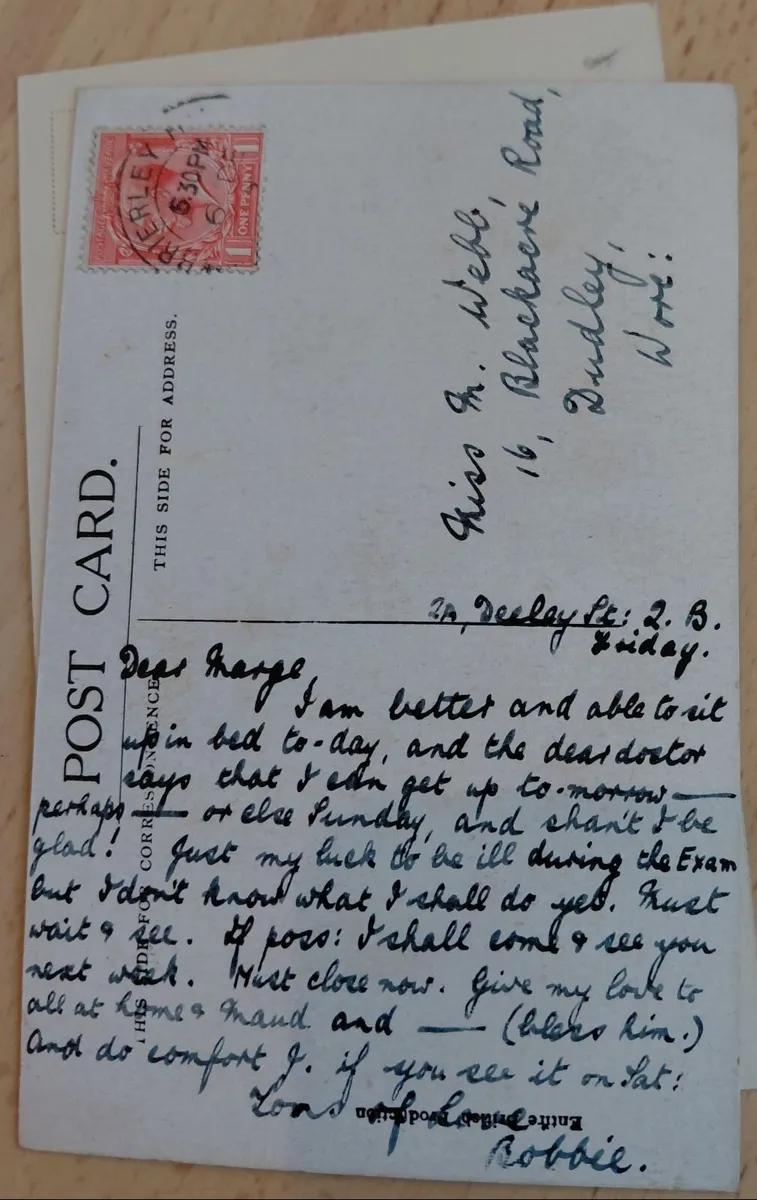 POST CARD.
THIS SIDE FOR ADDRESS.
THIS SIDE FOR CORRESPONDENCE
BRIERLEY
6.30 PM
6 DE
1 ONE PENNY 1
Miss M. Webb,
16, Blackacre Road,
Dudley,
Worc:
2A, Deeley St: Q. B.
Friday.
Dear Marge,
I am better and able to sit
up in bed to-day, and the dear doctor
says that I can get up to-morrow —
perhaps — or else Sunday, and shan't I be
glad! Just my luck to be ill during the Exam
but I don't know what I shall do yet. Must
wait & see. If poss: I shall come & see you
next week. Must close now. Give my love to
all at home & Maud and — (bless him.)
And do comfort J. if you see it on Sat:
Tons of love
Robbie.
Entire British Production